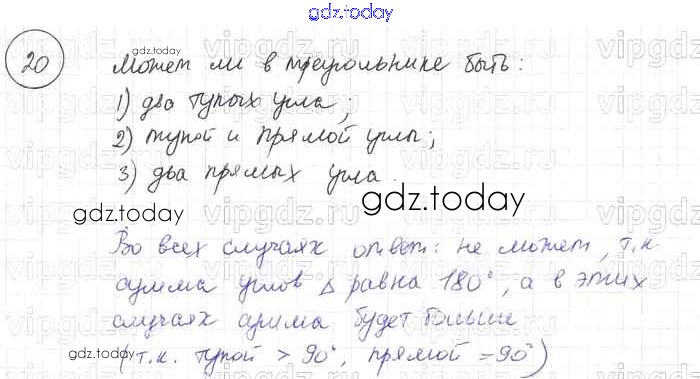 gdz.today
20
gdz.today
Может ли в треугольнике быть:
1) два тупых угла;
2) тупой и прямой углы;
3) два прямых угла.
gdz.today
gdz.today
Во всех случаях ответ: не может, т.к
сумма углов Δ равна 180°, а в этих
случаях сумма будет больше
(т.к. тупой > 90°, прямой = 90°)
gdz.today
gdz.today